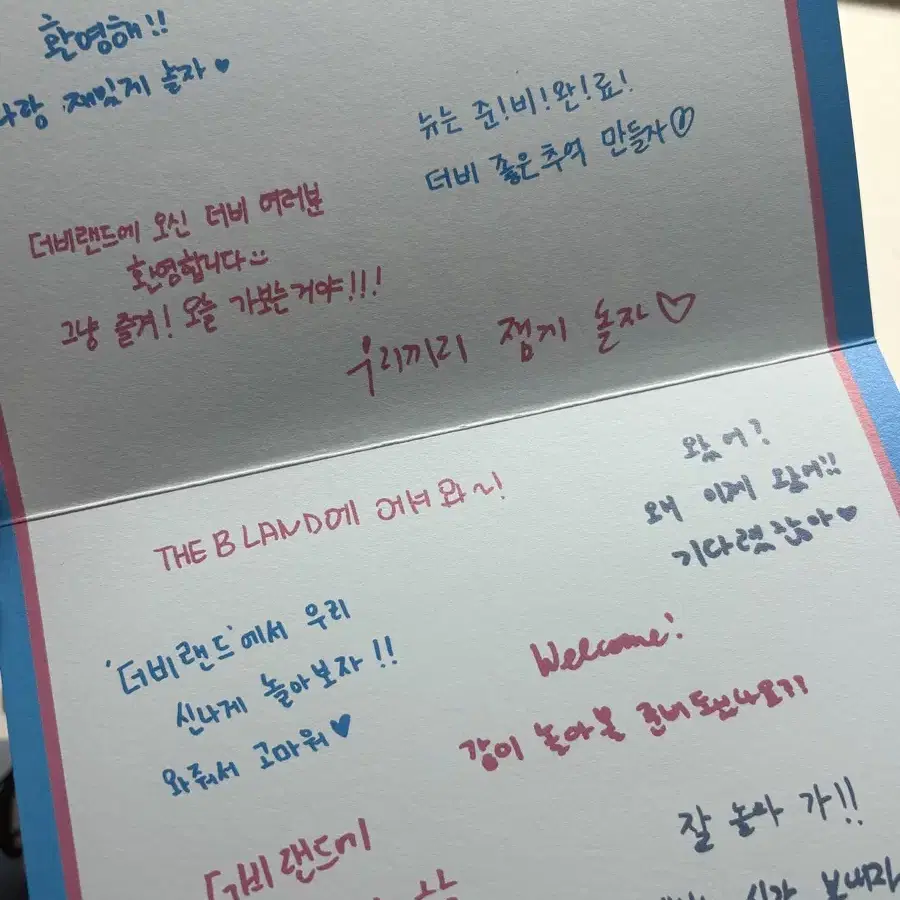 환영해!!
나랑 재밌게 놀자♥
뉴는 준!비!완!료!
더비 좋은 추억 만들자
더비랜드에 오신 더비 여러분
환영합니다
그냥 즐겨! 오늘 가보는거야!!!
우리끼리 잼게 놀자♡
THE B LAND에 어셔와~!
왔어?
왜 이제 왔어!!
기다렸잖아♥
'더비랜드'에서 우리
신나게 놀아보자!!
와줘서 고마워♥
Welcome!
같이 놀아볼 준비 되셨나요??
더비랜드에
잘 놀아 가!!
시간 보내자